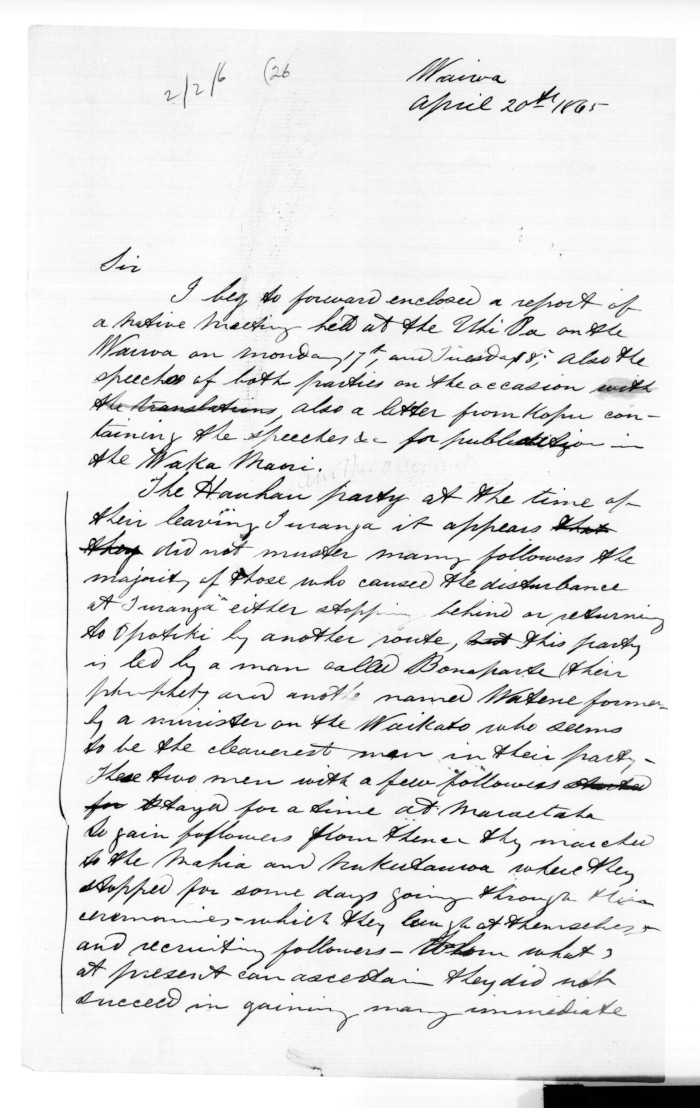 2/2/6 (26
Wairoa
April 20th 1865
Sir
I beg to forward enclosed a report of
a Native Meeting held at the Uhi Pa on the
Wairoa on Monday 17th and Tuesday 18; also the
speeches of both parties on the occasion with
the translations, also a letter from Kopu con-
taining the speeches &c for publication in
the Waka Maori.
The Hauhau party at the time of
their leaving Turanga it appears that
they did not muster many followers the
majority of those who caused the disturbance
at Turanga either stopping behind or returning
to Opotiki by another route, but this party
is led by a man called Bonaparte (their
and named Watene former-
ly a minister on the Waikato who seems
to be the cleverest man in their party –
These two men with a few followers started
for stayed for a time at Maraetaha
to gain followers from thence they marched
to the Mahia and Nukutaurua where they
stopped for some days going through their
ceremonies – which they laugh at themselves
and recruiting followers – what I
at present can ascertain they did not
succeed in gaining many immediate